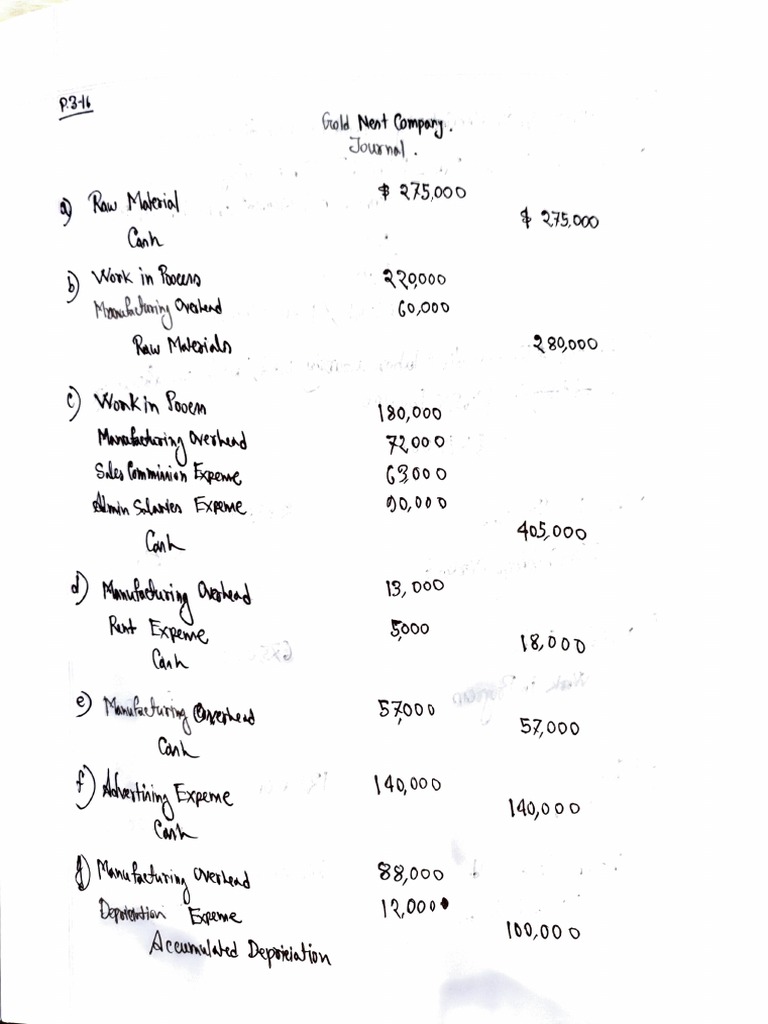 P.3-16
Gold Nest Company.
Journal.
a) Raw Material $ 275,000
Cash $ 275,000
b) Work in Process 220,000
Manufacturing Overhead 60,000
Raw Materials 280,000
c) Work in Process 180,000
Manufacturing Overhead 72000
Sales Commission Expense 63000
Admin Salaries Expense 90,000
Cash 405,000
d) Manufacturing Overhead 13,000
Rent Expense 5,000
Cash 18,000
e) Manufacturing Overhead 57,000
Cash 57,000
f) Advertising Expense 140,000
Cash 140,000
g) Manufacturing Overhead 88,000
Depreciation Expense 12,000
Accumulated Depreciation 100,000